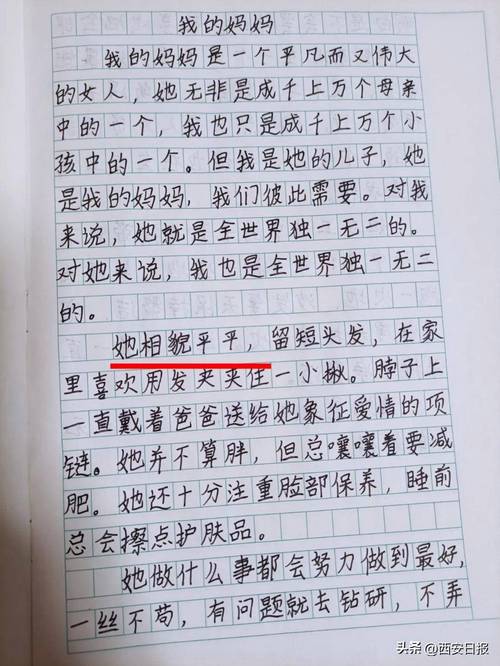 我的妈妈
我的妈妈是一个平凡而又伟大
的女人，她无非是成千上万个母亲
中的一个，我也只是成千上万个小
孩中的一个。但我是她的儿子，她
是我的妈妈，我们彼此需要。对我
来说，她就是全世界独一无二的。
对她来说，我也是全世界独一无二
的。
她相貌平平，留短头发，在家
里喜欢用发夹夹住一小楸。脖子上
一直戴着爸爸送给她象征爱情的项
链。她并不算胖，但总嚷嚷着要减
肥。她还十分注重脸部保养，睡前
总会擦点护肤品。
她做什么事都会努力做到最好，
一丝不苟，有问题就去钻研，不弄
头条 @西安日报